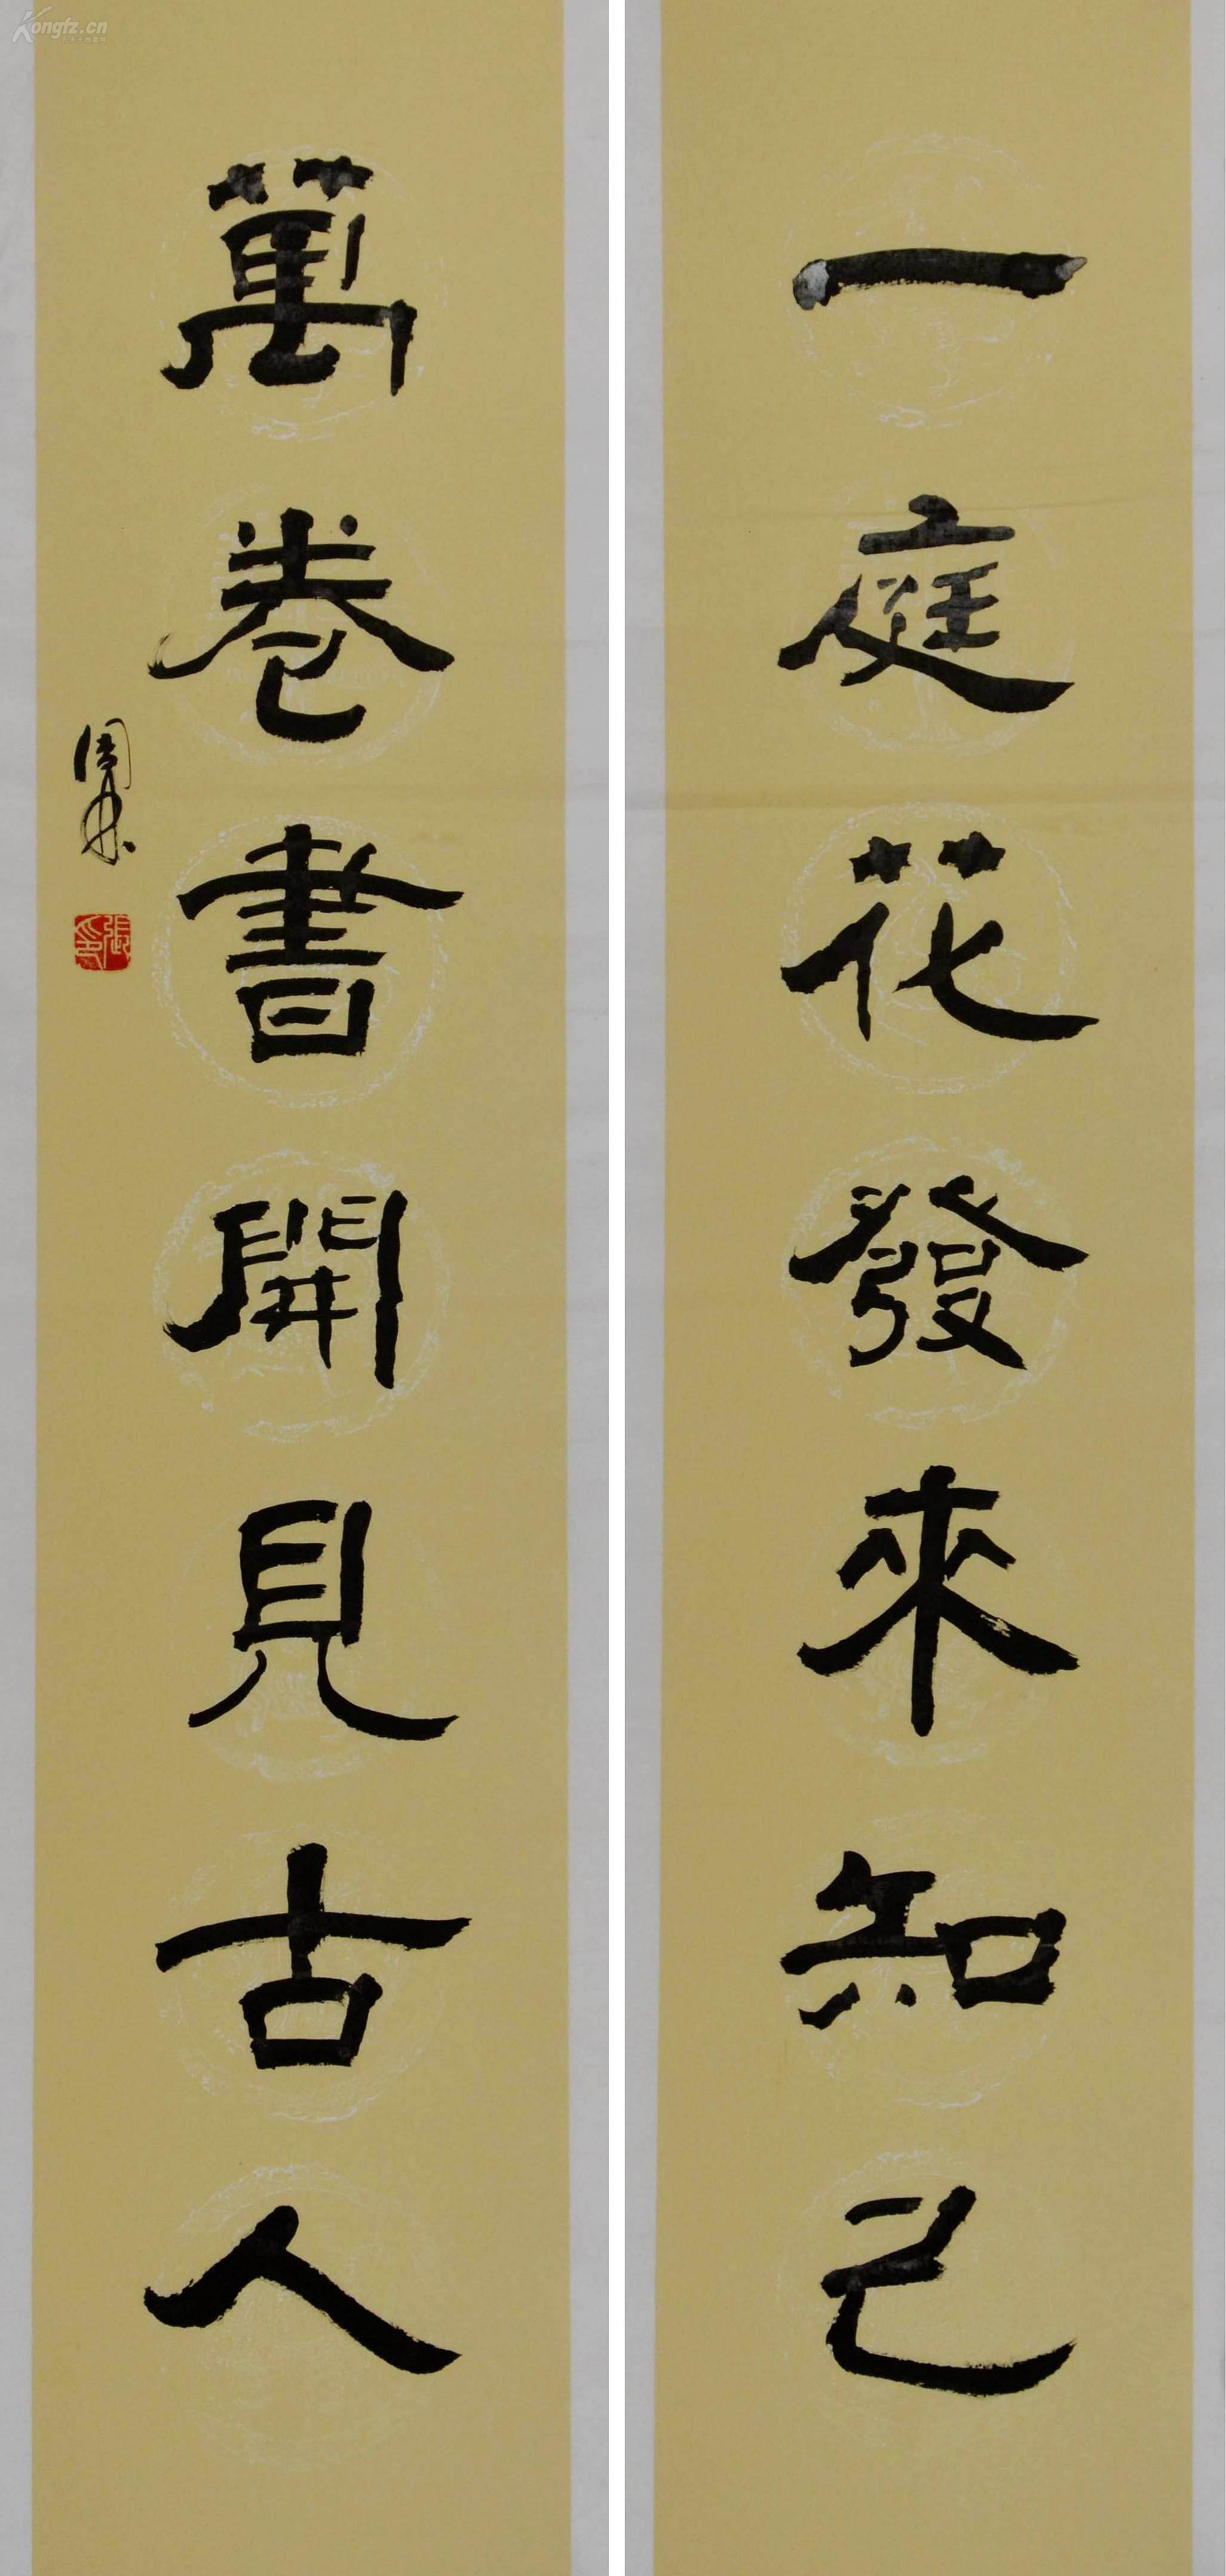 一庭花發來知己
萬卷書開見古人
張
Kongfz.cn